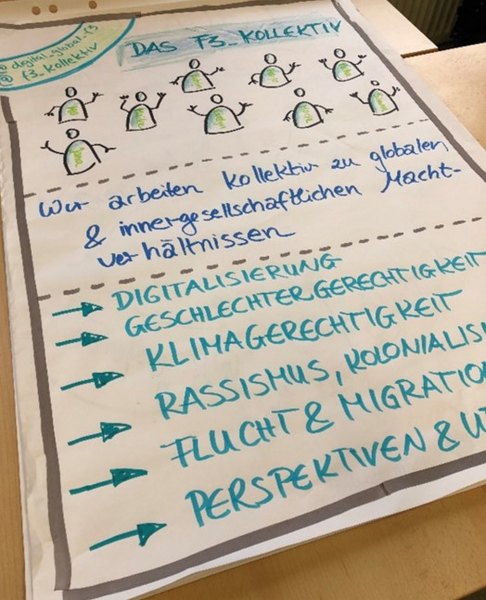 @digital_global_f3
@f3_kollektiv
DAS F3_KOLLEKTIV
Wir arbeiten kollektiv zu globalen
& innergesellschaftlichen Macht-
verhältnissen
DIGITALISIERUNG
GESCHLECHTERGERECHTIGKEIT
KLIMAGERECHTIGKEIT
RASSISMUS, KOLONIALIS
FLUCHT & MIGRATIO
PERSPEKTIVEN &